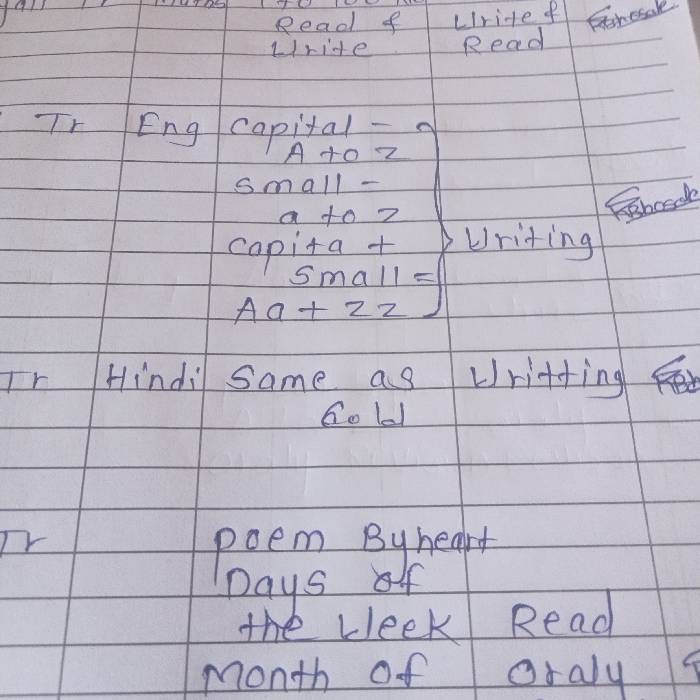 Tr Maths 1 to 100 No
Read & Write &
Write Read
Tr Eng Capital -
A to Z
Small -
a to z
Capita +
Small =
Aa + Zz
Writing
Tr Hindi Same as Writting
Gold
Tr Poem Byheart
Days of
the Week Read
Month of Oraly